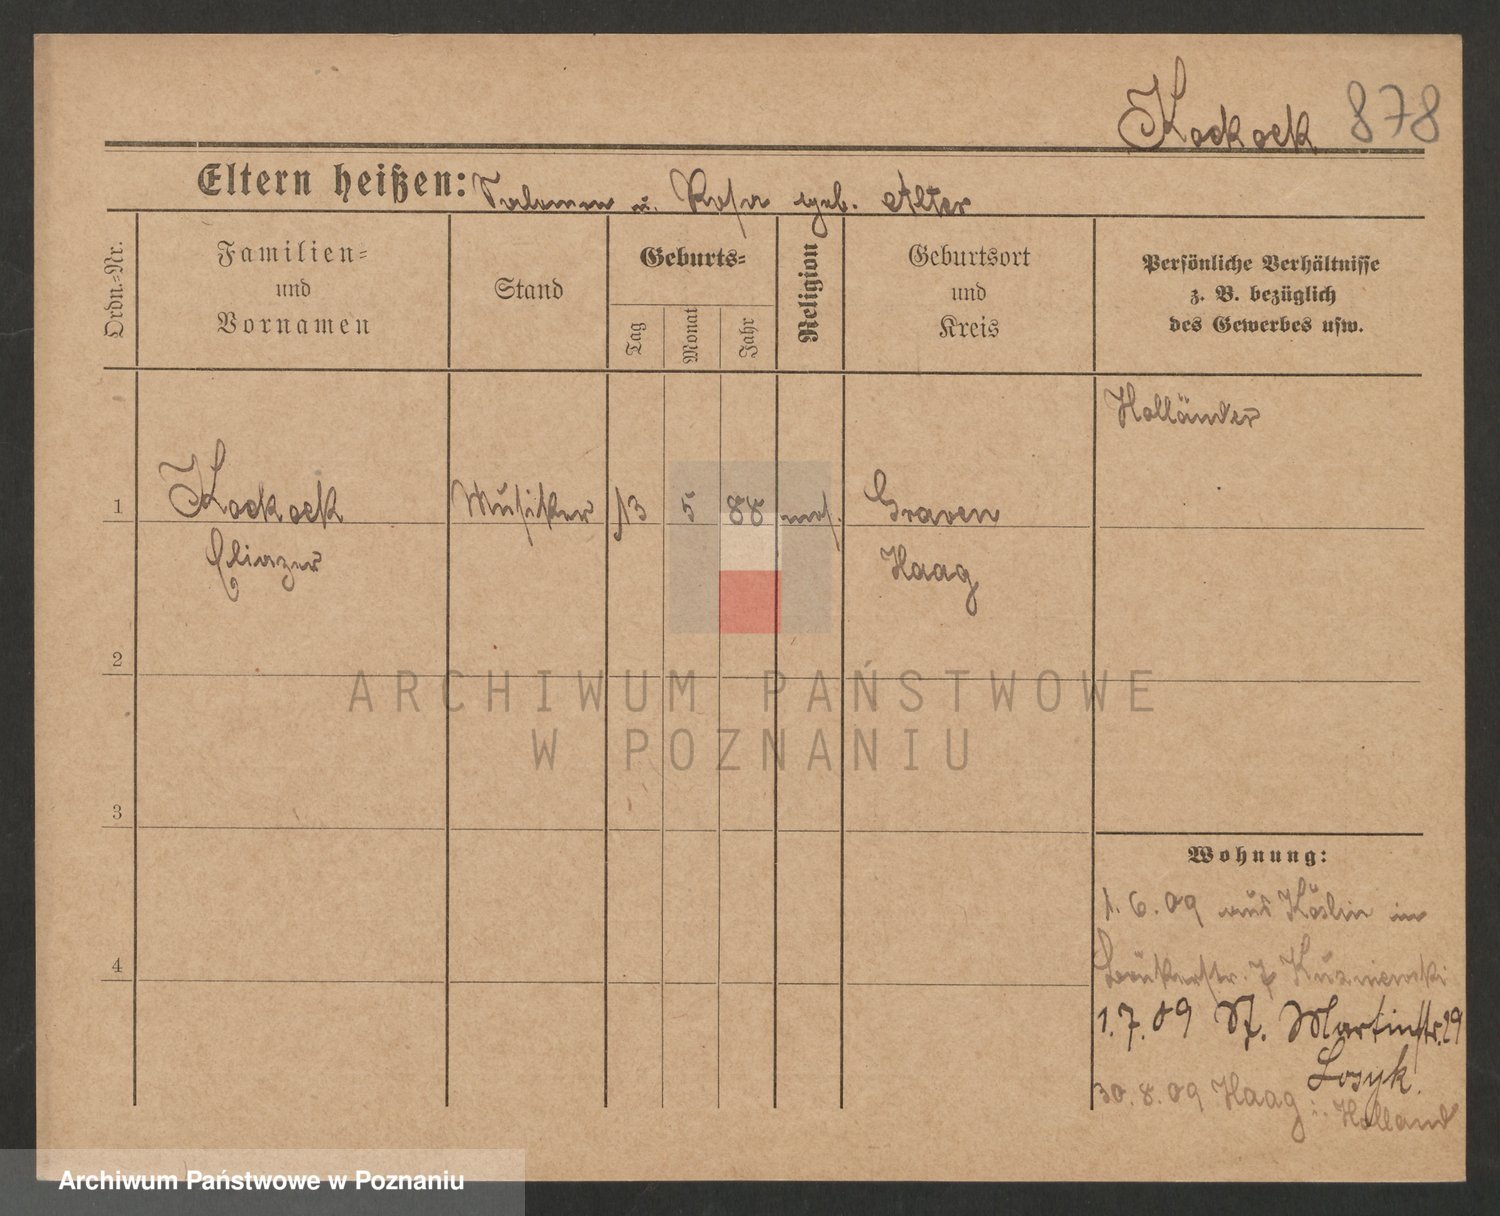 Kockock 878
Eltern heißen: Salomon u. Rosa geb. Alter
Ordn.-Nr.
Familien-
und
Vornamen
Stand
Geburts-
Tag
Monat
Jahr
Religion
Geburtsort
und
Kreis
Persönliche Verhältnisse
z. B. bezüglich
des Gewerbes usw.
Holländer
1 Kockock Musiker 13 5 88 mos. Graven
Eliazer Haag
2
ARCHIWUM PAŃSTWOWE
W POZNANIU
3
Wohnung:
1.6.09 aus Köslin in
4
7
1.7.09 St. Martinstr. 29
Losyk.
30.8.09 Haag i. Holland
Archiwum Państwowe w Poznaniu